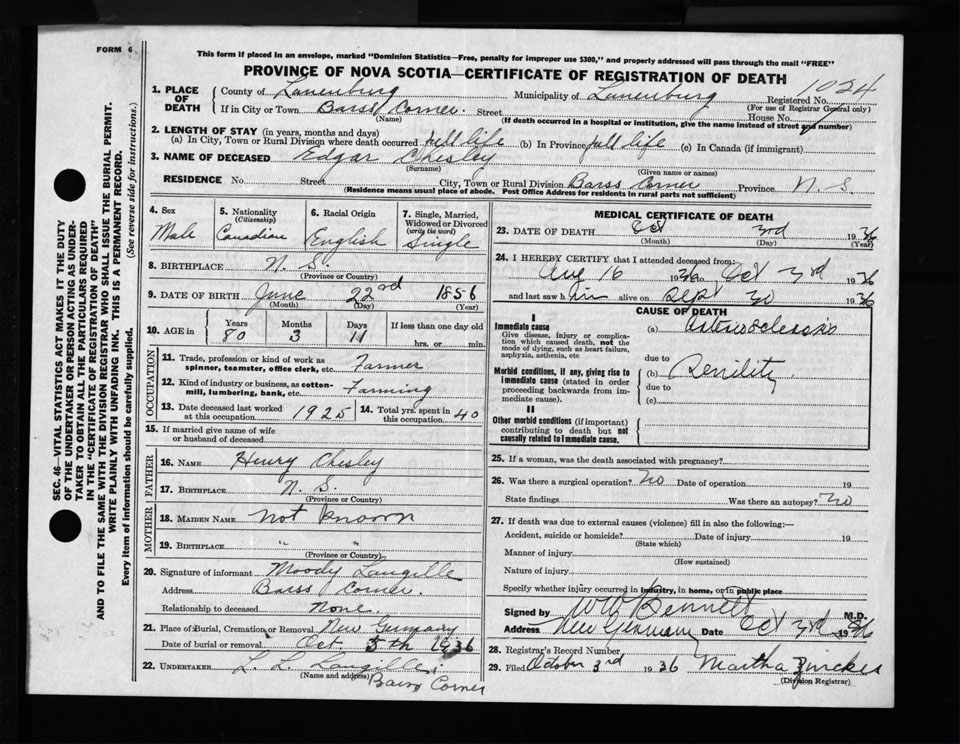 FORM 6
This form if placed in an envelope, marked "Dominion Statistics—Free, penalty for improper use $300," and properly addressed will pass through the mail "FREE"
PROVINCE OF NOVA SCOTIA—CERTIFICATE OF REGISTRATION OF DEATH
1. PLACE OF DEATH County of Lunenburg Municipality of Lunenburg Registered No. 1024
(For use of Registrar General only)
If in City or Town Barss Corner Street House No.
(Name) (If death occurred in a hospital or institution, give the name instead of street and number)
2. LENGTH OF STAY (in years, months and days)
(a) In City, Town or Rural Division where death occurred full life (b) In Province full life (c) In Canada (if immigrant)
3. NAME OF DECEASED Edgar Chesley
(Surname) (Given name or names)
RESIDENCE No. Street City, Town or Rural Division Barss Corner Province N. S.
(Residence means usual place of abode. Post Office Address for residents in rural parts not sufficient)
4. Sex Male
5. Nationality (Citizenship) Canadian
6. Racial Origin English
7. Single, Married, Widowed or Divorced (write the word) Single
8. BIRTHPLACE N. S.
(Province or Country)
9. DATE OF BIRTH June 22nd 1856
(Month) (Day) (Year)
10. AGE in Years 80 Months 3 Days 11 If less than one day old
hrs. or min.
OCCUPATION
11. Trade, profession or kind of work as spinner, teamster, office clerk, etc. Farmer
12. Kind of industry or business, as cotton-mill, lumbering, bank, etc. Farming
13. Date deceased last worked at this occupation 1925
14. Total yrs. spent in this occupation 40
15. If married give name of wife or husband of deceased
FATHER
16. NAME Henry Chesley
17. BIRTHPLACE N. S.
(Province or Country)
MOTHER
18. MAIDEN NAME not known
19. BIRTHPLACE " "
(Province or Country)
20. Signature of informant Moody Langille
Address Barss Corner.
Relationship to deceased None
21. Place of Burial, Cremation or Removal New Germany
Date of burial or removal Oct. 5th 1936
22. UNDERTAKER L. L. Langille
(Name and address)
Barss Corner
MEDICAL CERTIFICATE OF DEATH
23. DATE OF DEATH Oct 3rd 1936
(Month) (Day) (Year)
24. I HEREBY CERTIFY that I attended deceased from:
Aug 16 1936 to Oct 3rd 1936
and last saw him alive on Sept 30 1936
CAUSE OF DEATH
I
Immediate cause
Give disease, injury or complication which caused death, not the mode of dying, such as heart failure, asphyxia, asthenia, etc
(a) Arteriosclerosis
due to
Morbid conditions, if any, giving rise to immediate cause (stated in order proceeding backwards from immediate cause).
(b) Senility
due to
(c)
II
Other morbid conditions (if important) contributing to death but not causally related to immediate cause.
25. If a woman, was the death associated with pregnancy?
26. Was there a surgical operation? no Date of operation 19
State findings Was there an autopsy? no
27. If death was due to external causes (violence) fill in also the following:—
Accident, suicide or homicide? Date of injury 19
(State which)
Manner of injury
(How sustained)
Nature of injury
Specify whether injury occurred in industry, in home, or in public place
Signed by W W Bennett M.D.
Address New Germany Date Oct 3rd 1936
28. Registrar's Record Number
29. Filed October 3rd 1936 Martha
(Division Registrar)
SEC. 46—VITAL STATISTICS ACT MAKES IT THE DUTY
OF THE UNDERTAKER OR PERSON ACTING AS UNDERTAKER
TO OBTAIN ALL THE PARTICULARS REQUIRED
IN THE "CERTIFICATE OF REGISTRATION OF DEATH"
AND TO FILE THE SAME WITH THE DIVISION REGISTRAR WHO SHALL ISSUE THE BURIAL PERMIT.
WRITE PLAINLY WITH UNFADING INK. THIS IS A PERMANENT RECORD.
Every item of information should be carefully supplied. (See reverse side for instructions.)